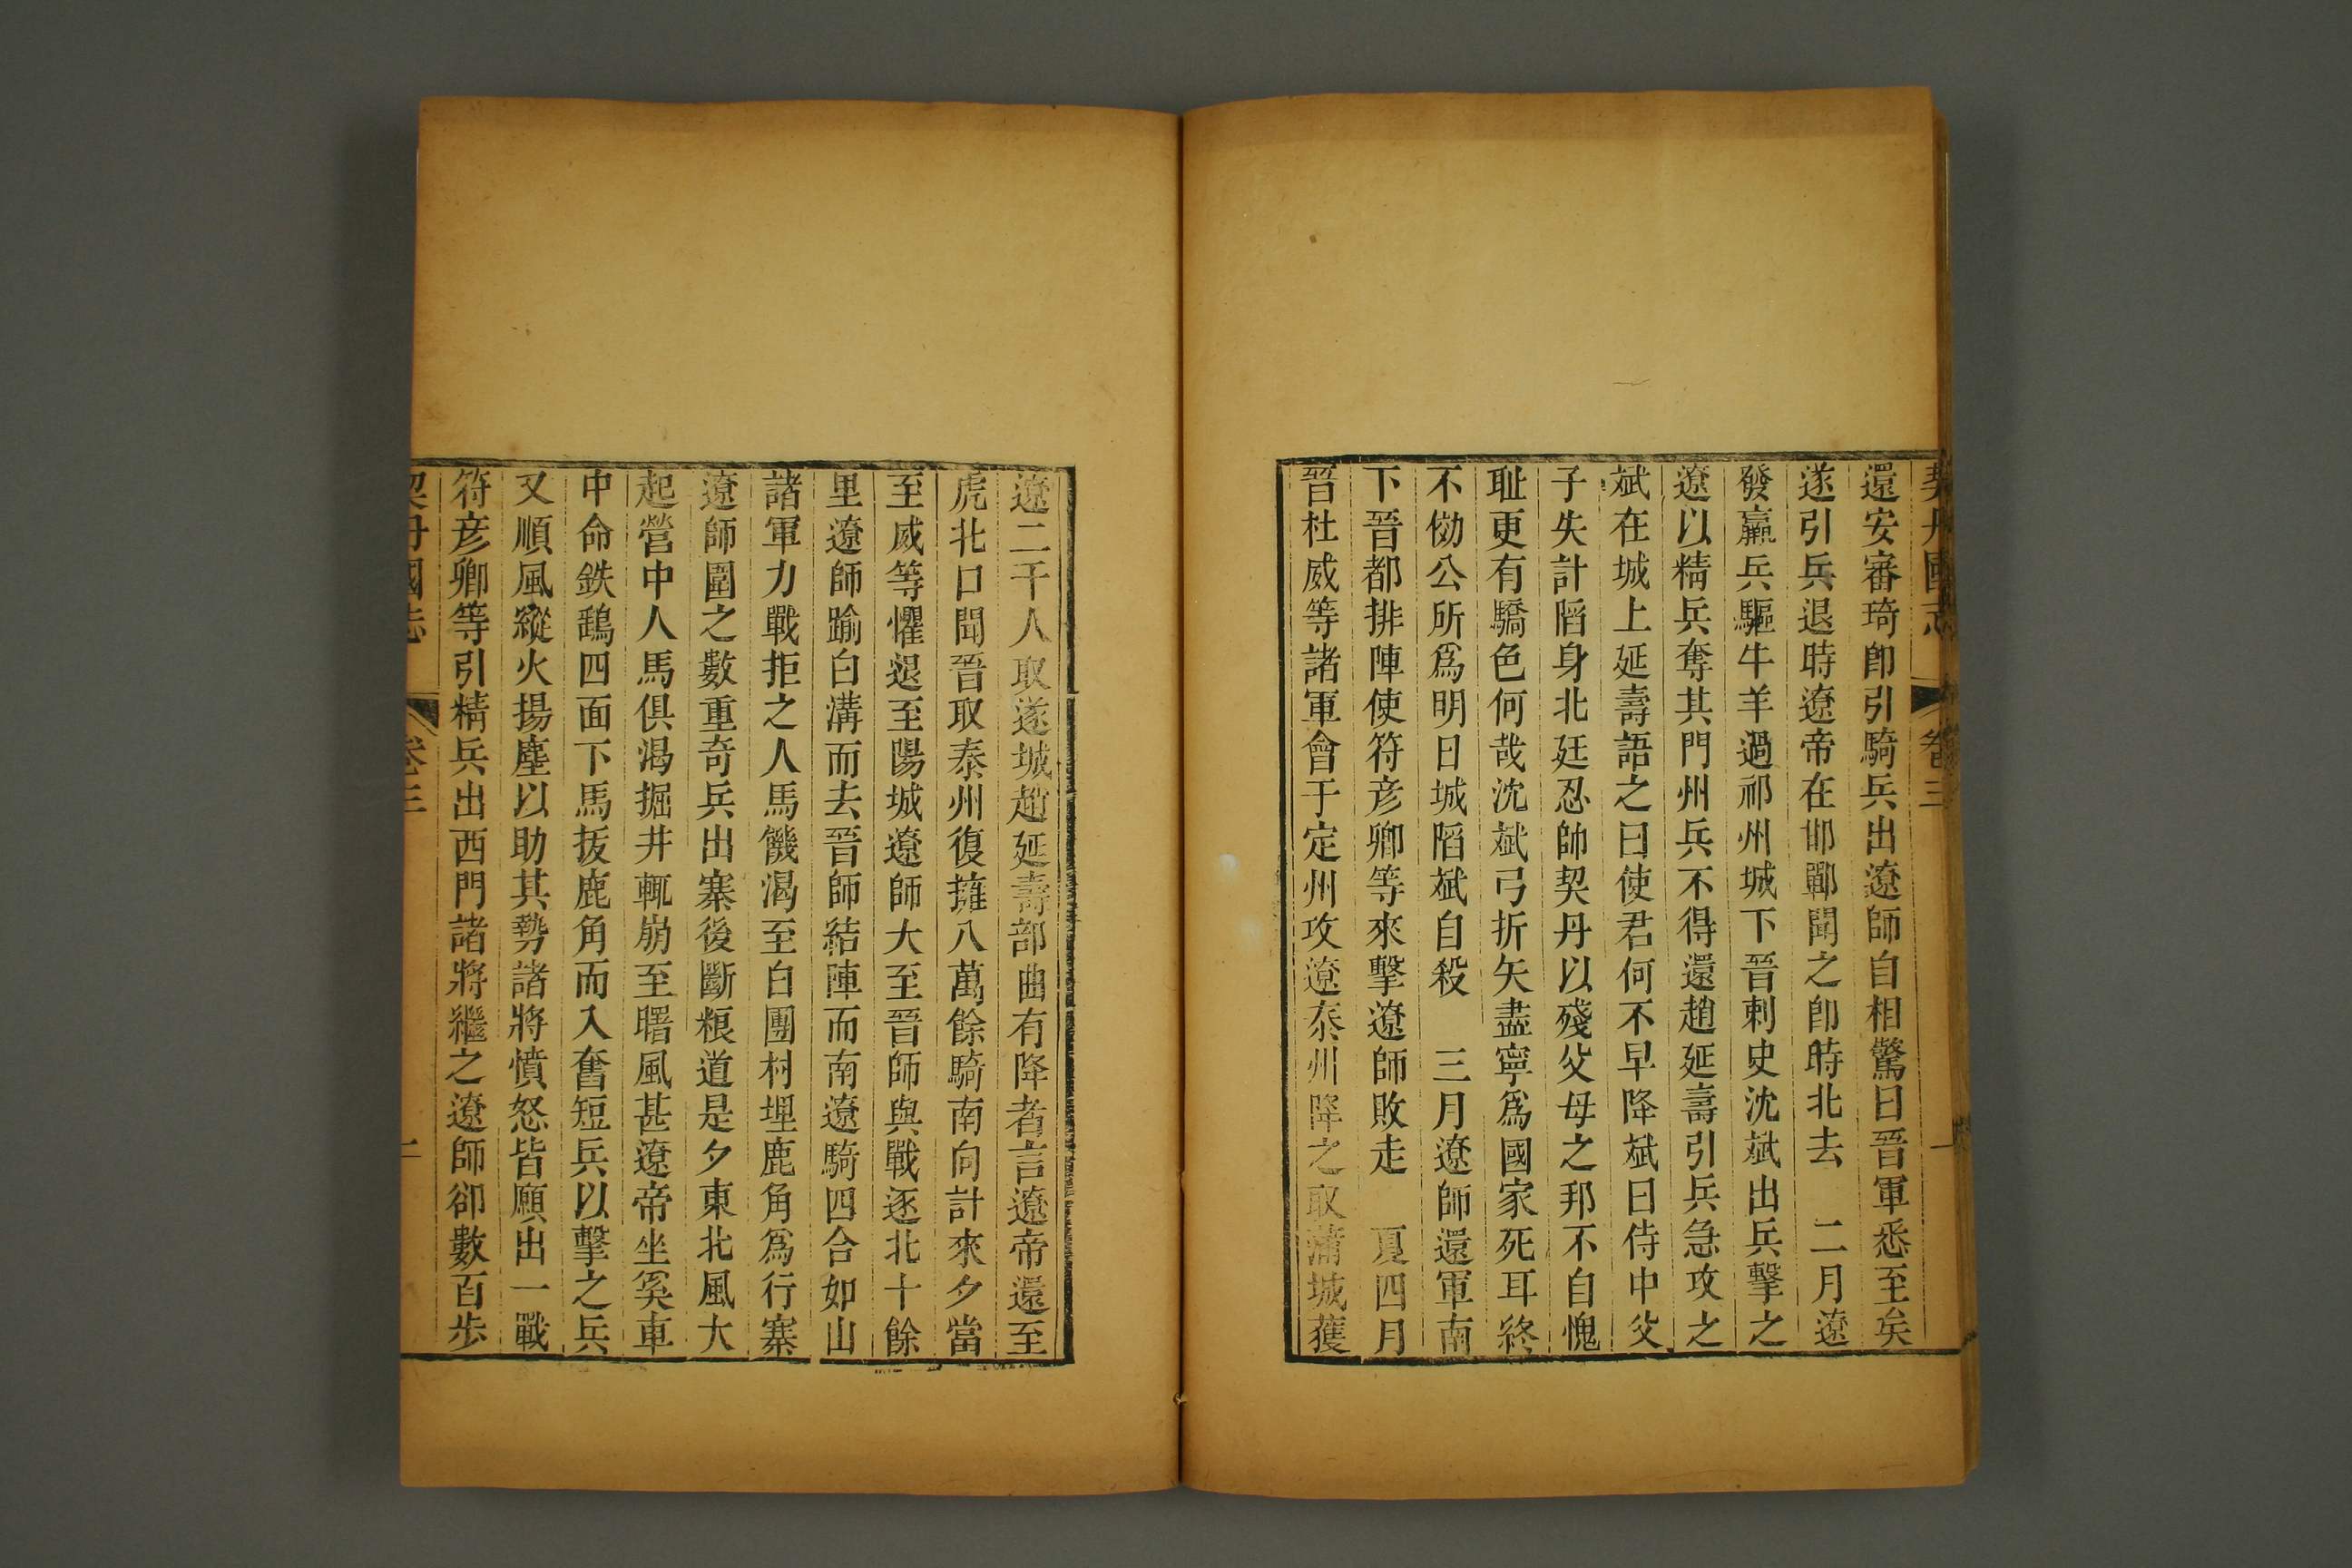 契丹國志 卷三 一
還安審琦卽引騎兵出遼師自相驚曰晉軍悉至矣
遂引兵退時遼帝在邯鄲聞之卽時北去 二月遼
發羸兵驅牛羊過祁州城下晉刺史沈斌出兵擊之
遼以精兵奪其門州兵不得還趙延壽引兵急攻之
斌在城上延壽語之曰使君何不早降斌曰侍中父
子失計陷身北廷忍帥契丹以殘父母之邦不自愧
耻更有驕色何哉沈斌弓折矢盡寧爲國家死耳終
不効公所爲明日城陷斌自殺 三月遼師還軍南
下晉都排陣使符彦卿等來擊遼師敗走 夏四月
晉杜威等諸軍會于定州攻遼泰州降之取蒲城獲
遼二千人取遂城趙延壽部曲有降者言遼帝還至
虎北口聞晉取泰州復擁八萬餘騎南向計來夕當
至威等懼退至陽城遼師大至晉師與戰逐北十餘
里遼師踰白溝而去晉師結陣而南遼騎四合如山
諸軍力戰拒之人馬饑渴至白團村埋鹿角爲行寨
遼師圍之數重奇兵出寨後斷粮道是夕東北風大
起營中人馬俱渴掘井輒崩至曙風甚遼帝坐奚車
中命鉄鷂四面下馬拔鹿角而入奮短兵以擊之兵
又順風縱火揚塵以助其勢諸將憤怒皆願出一戰
符彦卿等引精兵出西門諸將繼之遼師卻數百步
契丹國志 卷三 二